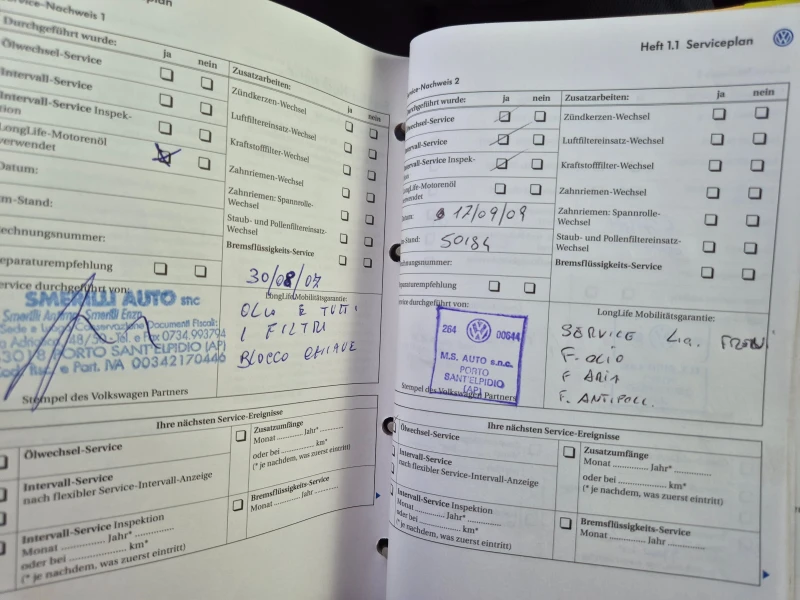 Service-Nachweis 1
Durchgeführt wurde:
ja
nein
Ölwechsel-Service
Intervall-Service
Intervall-Service Inspek-
tion
LongLife-Motorenöl
verwendet
Datum:
km-Stand:
Rechnungsnummer:
Reparaturempfehlung
Service durchgeführt von:
SMERILLI AUTO snc
PORTO SANT'ELPIDIO (AP)
Part. IVA 00342170446
Stempel des Volkswagen Partners
Zusatzarbeiten:
ja
nein
Zündkerzen-Wechsel
Luftfiltereinsatz-Wechsel
Kraftstofffilter-Wechsel
Zahnriemen-Wechsel
Zahnriemen: Spannrolle-
Wechsel
Staub- und Pollenfiltereinsatz-
Wechsel
Bremsflüssigkeits-Service
30/08/07
LongLife Mobilitätsgarantie:
OLIO E TUTTI
I FILTRI
BLOCCO CHIAVE
Ihre nächsten Service-Ereignisse
Ölwechsel-Service
Intervall-Service
nach flexibler Service-Intervall-Anzeige
Intervall-Service Inspektion
Monat .............. Jahr* ..............
oder bei .............. km*
(* je nachdem, was zuerst eintritt)
Zusatzumfänge
Monat .............. Jahr*
oder bei .............. km*
(* je nachdem, was zuerst eintritt)
Bremsflüssigkeits-Service
Monat .............. Jahr ..............
Heft 1.1 Serviceplan
Service-Nachweis 2
Durchgeführt wurde:
ja
nein
Ölwechsel-Service
Intervall-Service
Intervall-Service Inspek-
tion
LongLife-Motorenöl
verwendet
Datum:
17/09/09
km-Stand:
50184
Rechnungsnummer:
Reparaturempfehlung
Service durchgeführt von:
264
00644
M.S. AUTO s.n.c.
PORTO
SANT'ELPIDIO
(AP)
Stempel des Volkswagen Partners
Zusatzarbeiten:
ja
nein
Zündkerzen-Wechsel
Luftfiltereinsatz-Wechsel
Kraftstofffilter-Wechsel
Zahnriemen-Wechsel
Zahnriemen: Spannrolle-
Wechsel
Staub- und Pollenfiltereinsatz-
Wechsel
Bremsflüssigkeits-Service
LongLife Mobilitätsgarantie:
SERVICE Liq. FRENI
F. OLIO
F ARIA
F. ANTIPOLL.
Ihre nächsten Service-Ereignisse
Ölwechsel-Service
Intervall-Service
nach flexibler Service-Intervall-Anzeige
Intervall-Service Inspektion
Monat .............. Jahr* ..............
oder bei .............. km*
(* je nachdem, was zuerst eintritt)
Zusatzumfänge
Monat .............. Jahr*
oder bei .............. km*
(* je nachdem, was zuerst eintritt)
Bremsflüssigkeits-Service
Monat .............. Jahr ..............